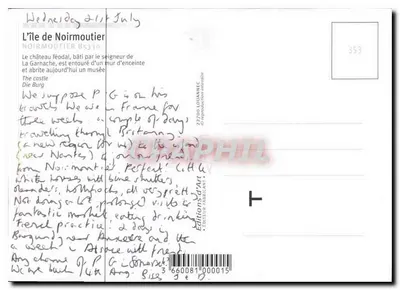 Wednesday 21st July
L'île de Noirmoutier
NOIRMOUTIER 85330
Le château féodal, bâti par le seigneur de
La Garnache, est entouré d'un mur d'enceinte
et abrite aujourd'hui un musée
The castle
Die Burg
We suppose P G is on his
travels We are in France for
three weeks a couple of days
travelling through Brittany
(a new region for us) to the
(near Nantes) &
from Noirmoutier Perfect! Little
white houses with blue shutters
hollyhocks, all very pretty
Not doing a lot prolonged visits to
fantastic market eating drinking
French practice 2 days in
Burgundy near Auxerre and then
a week in Alsace with friends
Any chance of P G in Somerset?
We are back 14th Aug.
353
CPAPHIL
Editions d'Art
3 660081 000015